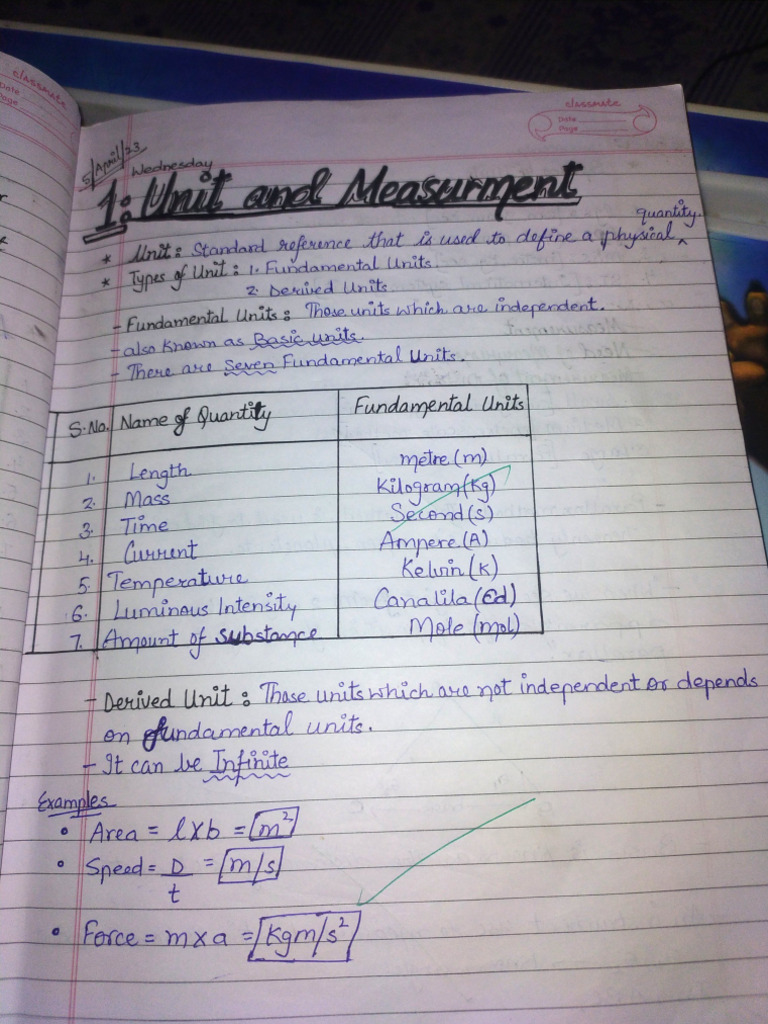 classmate
Date
Page
classmate
Date
Page
5/April/23
Wednesday
1: Unit and Measurment
* Unit: Standard reference that is used to define a physical quantity.
* Types of Unit: 1. Fundamental Units.
2. Derived Units
- Fundamental Units: Those units which are independent.
- also known as Basic units.
- There are Seven Fundamental Units.
S.No. Name of Quantity Fundamental Units
1. Length metre (m)
2. Mass Kilogram (Kg)
3. Time Second (s)
4. Current Ampere (A)
5. Temperature Kelvin (K)
6. Luminous Intensity Canalila (Cd)
7. Amount of Substance Mole (mol)
- Derived Unit: Those units which are not independent or depends
on fundamental units.
- It can be Infinite
Examples
• Area = l x b = m²
• Speed = D/t = m/s
• Force = m x a = Kgm/s²